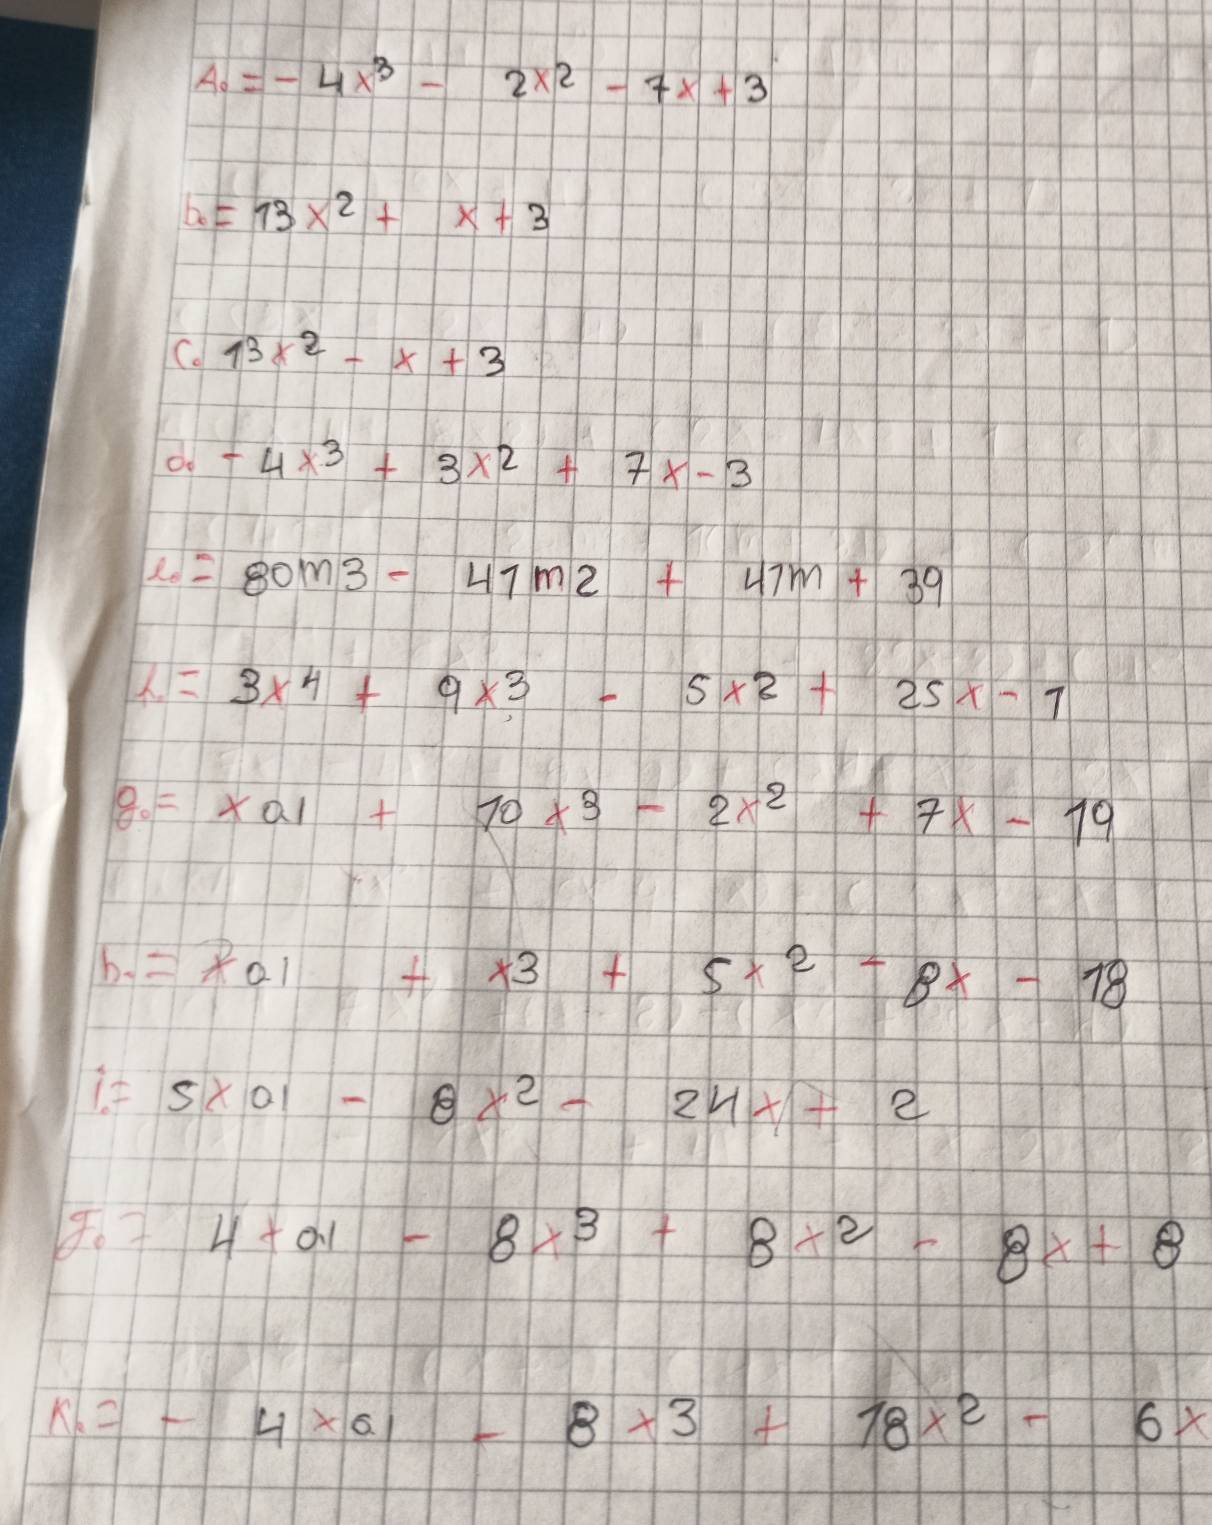 A. = - 4x³ - 2x² - 7x + 3
b. = 13x² + x + 3
c. 13x² - x + 3
d. - 4x³ + 3x² + 7x - 3
e. = 80m3 - 41m2 + 41m + 39
= 3x4 + 9x3 - 5x2 + 25x - 1
g. = xal + 10x3 - 2x² + 7x - 19
h. = xal + x3 + 5x² - 8x - 18
i. = 5xal - 8x² - 24x + 2
J. = 4xal - 8x³ + 8x² - 8x + 8
K. = - 4xal - 8x3 + 18x² - 6x